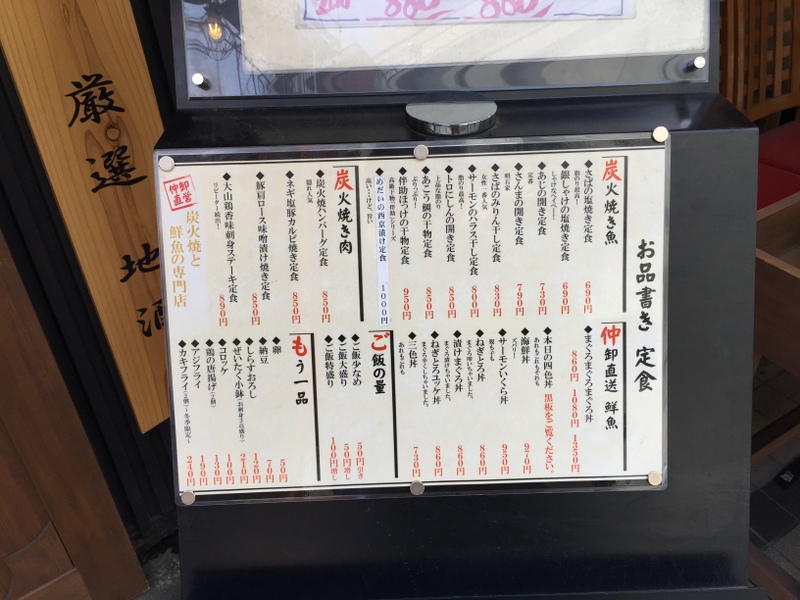 厳選
地酒
お品書き 定食
炭火焼き魚
◆さばの塩焼き定食 690円
脂のり最高!
◆銀しゃけの塩焼き定食 690円
◆あじの開き定食 730円
定番
◆さんまの開き定食 790円
◆さばのみりん干し定食 830円
女性一番人気
◆サーモンのハラス干し定食 800円
脂のり最高!
◆トロにしんの開き定食 850円
上品な脂のり
◆あこう鯛の干物定食 850円
◆伴助ほっけの干物定食 950円
◆めだいの西京漬け定食 1000円
炭火焼き肉
◆炭火焼ハンバーグ定食 850円
隠れ人気
◆ネギ塩豚カルビ焼き定食 850円
◆豚肩ロース味噌漬け焼き定食 850円
◆大山鶏香味刺身ステーキ定食 890円
リピーター続出!
仲卸直営
炭火焼と
鮮魚の専門店
仲卸直送 鮮魚
◆まぐろまぐろまぐろ丼
860円 1080円 1350円
◆本日の四色丼 黒板をご覧ください。
あれもこれもそれも
◆海鮮丼 970円
ズバリー
◆サーモンいくら丼 950円
親も子も
◆ねぎとろ丼 860円
◆漬けまぐろ丼 860円
まぐろ漬けちゃいました。
◆ねぎとろユッケ丼 860円
◆三色丼 730円
あれもこれも
ご飯の量
◆ご飯少なめ 50円引き
◆ご飯大盛り 50円増し
◆ご飯特盛り 100円増し
もう一品
◆卵 50円
◆納豆 70円
◆しらすおろし 120円
◆ぜいたく小鉢(お刺身3点盛り) 210円
◆コロッケ 100円
◆鶏の唐揚げ(2個) 130円
◆アジフライ 190円
◆カキフライ(2個)〜冬季限定〜 240円